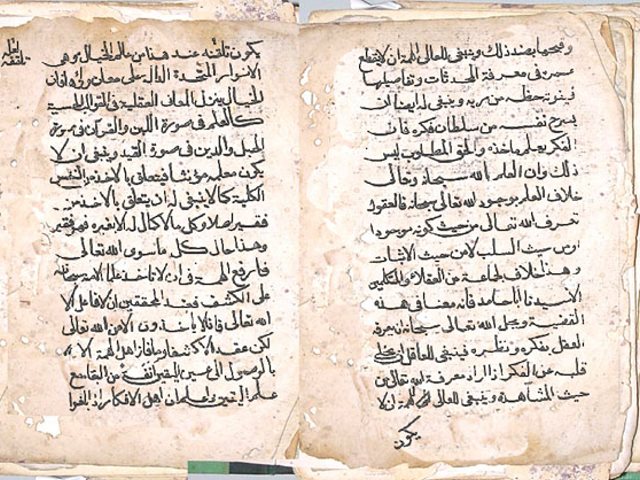 بضد ذلك وينبغي للعالي الهمة ان لا يقطع
عمره في معرفة المحدثات وتفاصيلها
فيفوته حظه من ربه وينبغي له ايضا ان
يسرح نفسه من سلطان فكره فان
الفكر يعلم ماخذه والحق المطلوب ليس
ذلك وان العلم بالله سبحانه وتعالى
خلاف العلم بوجود الله تعالى سبحانه فالعقول
تعرف الله تعالى من حيث كونه موجودا
ومن حيث السلب لا من حيث الاثبات
وهذا خلاف لجماعة من العقلاء والمتكلمين
الا سيدنا ابا حامد فانه معنا في هذه
القضية ويجل الله تعالى سبحانه ان يعرفه
العقل بفكره ونظره فينبغي للعاقل ان يخلي
قلبه عن الفكر اذا اراد معرفة الله تعالى من
حيث المشاهدة وينبغي للعالي الهمة ان لا
يكون
يكون تلقنه عند هذا من عالم الخيال وهي
الانوار المتجسدة الدالة على معان وراءها فان
الخيال ينزل المعاني العقلية في القوالب الحسية
كالعلم في صورة اللبن والقرآن في صورة
الحبل والدين في صورة القيد وينبغي ان لا
يكون معلمه مؤنثا فيتعلق بالاخذ من النفس
الكلية كما لا ينبغي له ان يتعلق بالاخذ من
فقير اصلا وكل ما لا كمال له الا بغيره فهو فقير
وهذا حال كل ما سوى الله تعالى
فارفع الهمة في ان لا تاخذ علما الا منه سبحانه
على الكشف فعند المحققين ان لا فاعل الا
الله تعالى فاذا لا ياخذون الا من الله تعالى
لكن عقدا لا كشفا وما فاز اهل الهمة الا
بالوصول الى عين اليقين انفة من البقا مع
علم اليقين واعلم ان اهل الافكار اذا بلغوا
لعله
تلقفه